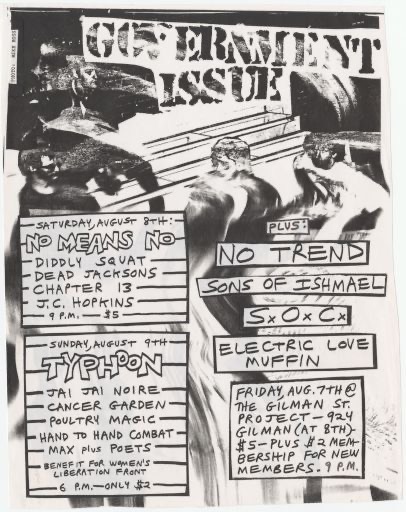 GOVERNMENT
ISSUE
SATURDAY, AUGUST 8TH:
NO MEANS NO
DIDDLY SQUAT
DEAD JACKSONS
CHAPTER 13
J.C. HOPKINS
9 P.M. — $5
SUNDAY, AUGUST 9TH
TYPHOON
JAI JAI NOIRE
CANCER GARDEN
POULTRY MAGIC
HAND TO HAND COMBAT
MAX PLUS POETS
BENEFIT FOR WOMEN'S
LIBERATION FRONT
6 P.M.—ONLY $2
PLUS:
NO TREND
SONS OF ISHMAEL
SxOxCx
ELECTRIC LOVE
MUFFIN
FRIDAY, AUG. 7TH @
THE GILMAN ST.
PROJECT - 924
GILMAN (AT 8TH)-
$5-PLUS $2 MEM-
BERSHIP FOR NEW
MEMBERS. 9 P.M.